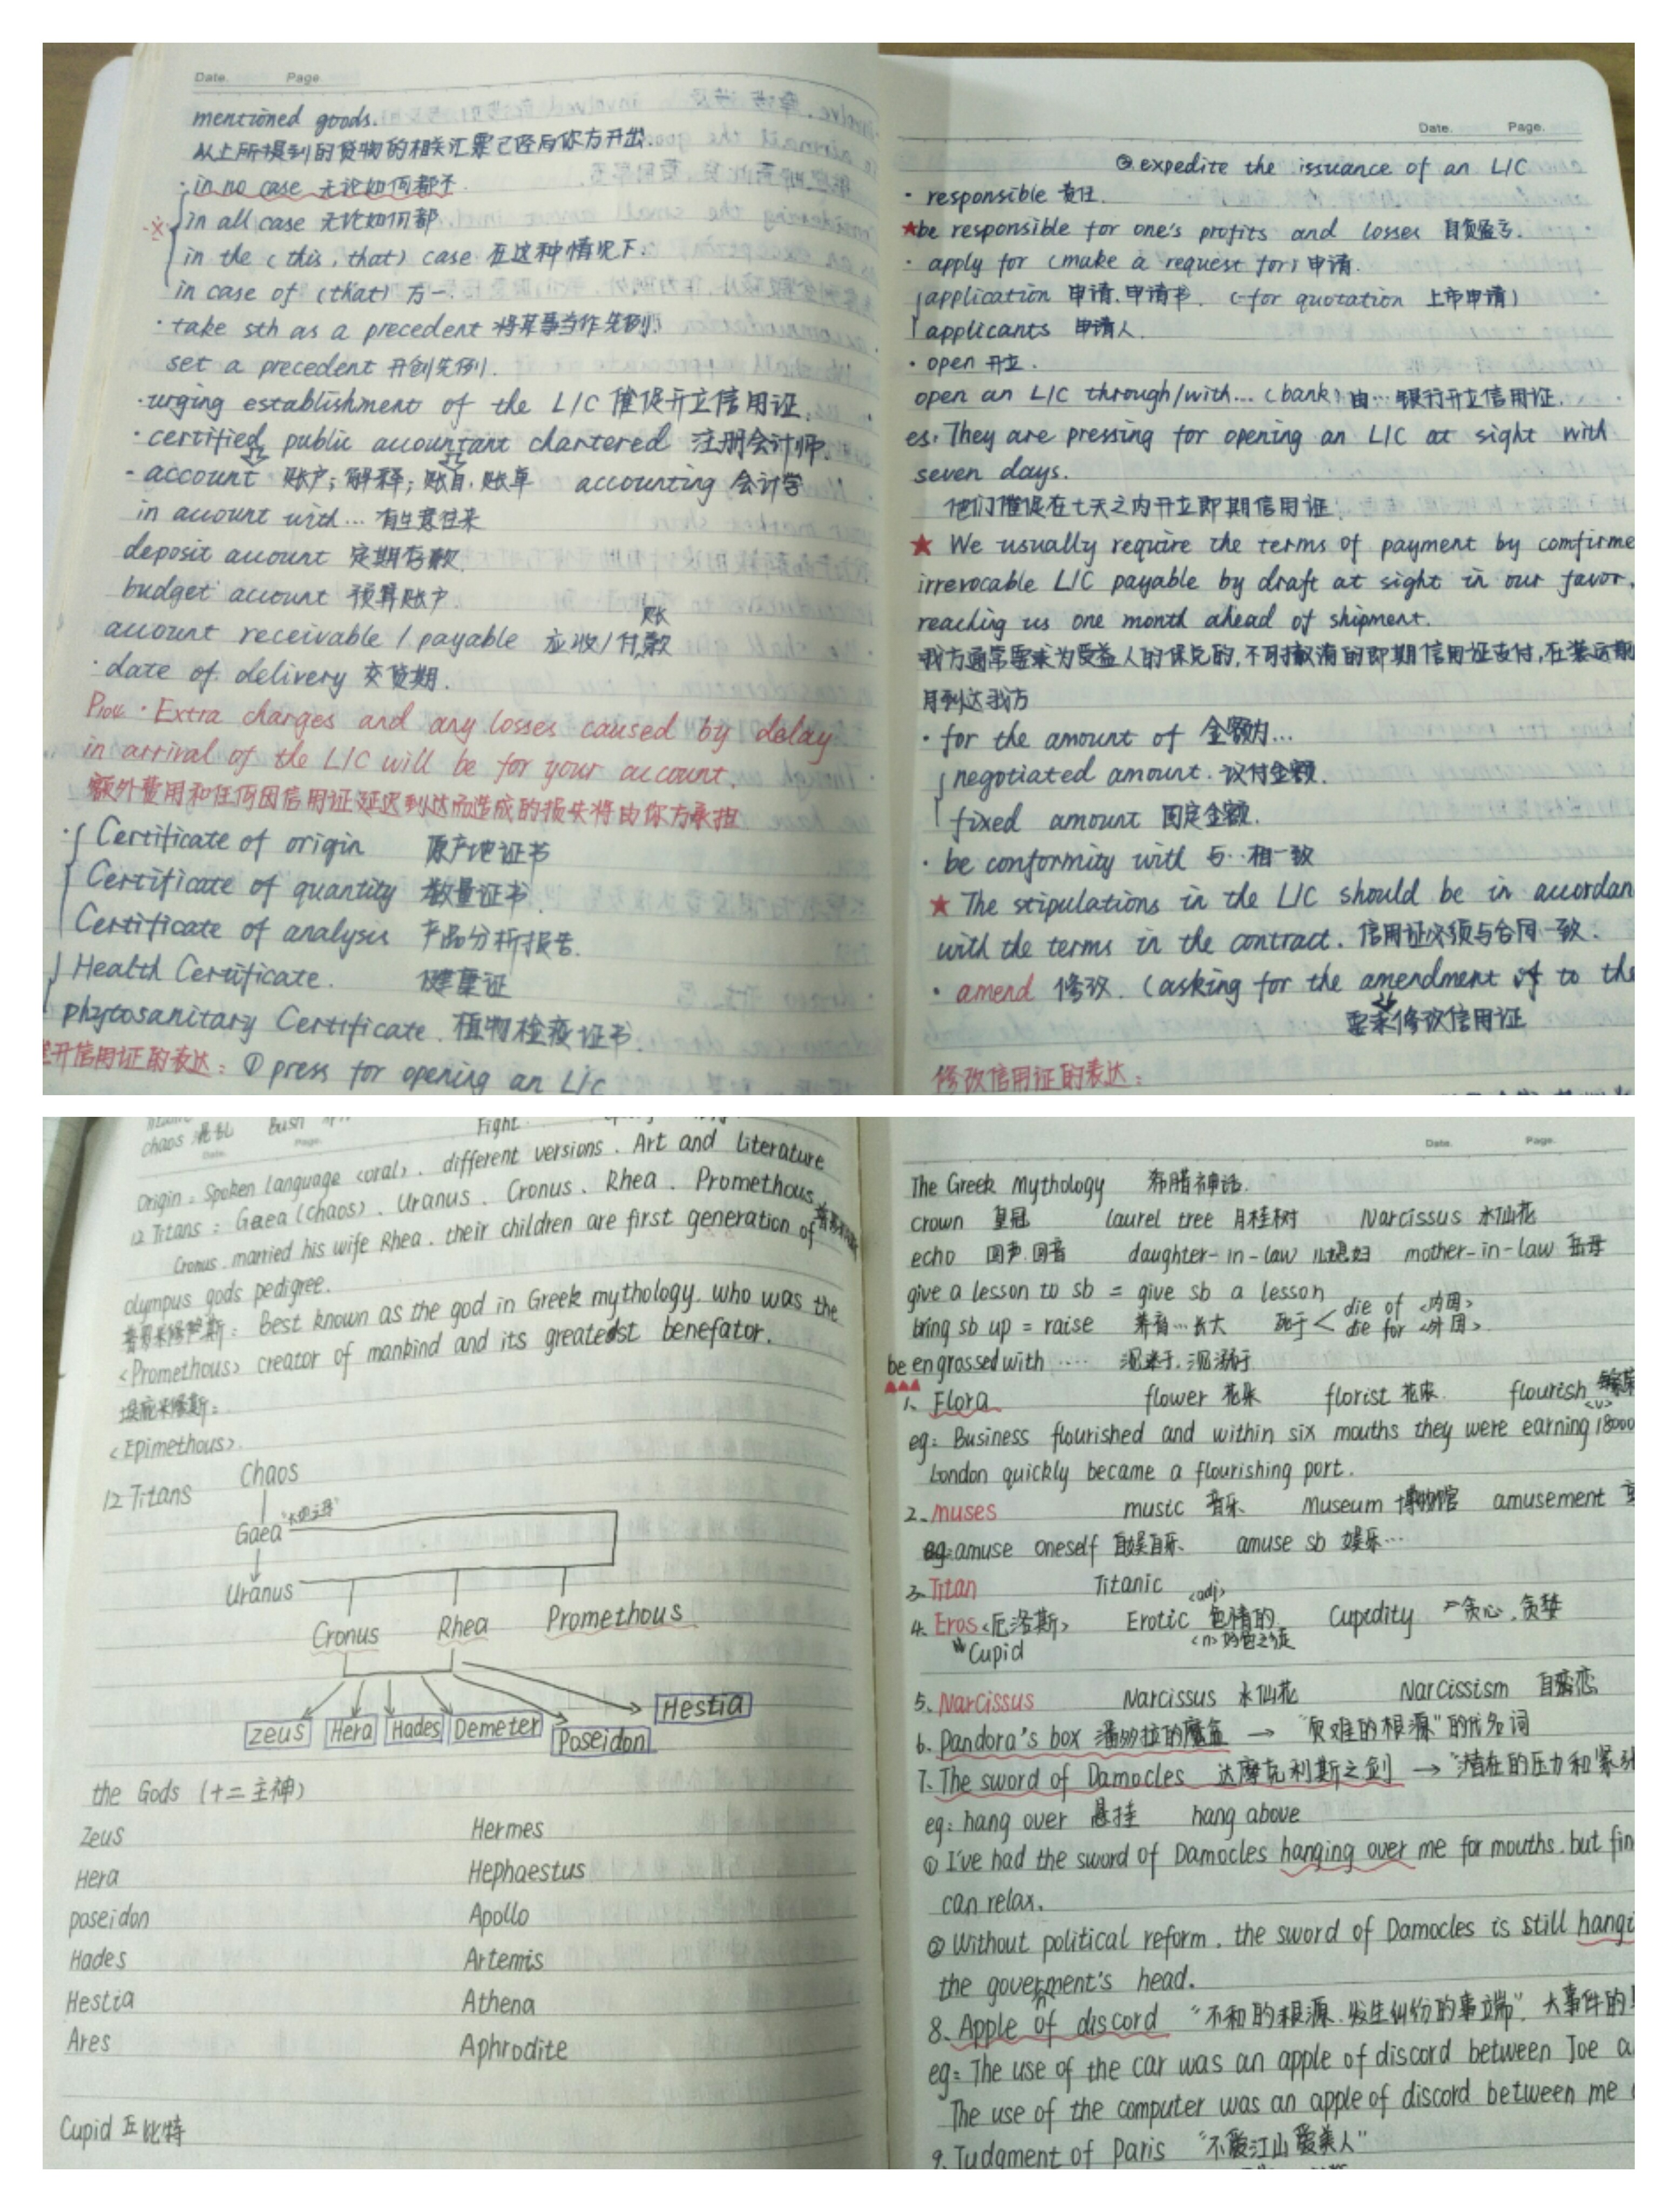 Date. Page.
mentioned goods.
从上所提到的货物的相关汇票已经向你方开出.
· in no case 无论如何都不.
in all case 无论如何都
in the (this, that) case 在这种情况下.
in case of (that) 万一.
· take sth as a precedent 将某事当作先例.
set a precedent 开创先例.
· urging establishment of the L/C 催促开立信用证.
· certified public accountant chartered 注册会计师.
- account 账户; 解释; 账目, 账单 accounting 会计学
in account with... 有生意往来
deposit account 定期存款.
budget account 预算账户.
账
account receivable / payable 应收/付款
· date of delivery 交货期.
· Extra charges and any losses caused by delay
in arrival of the L/C will be for your account.
额外费用和任何因信用证延迟到达而造成的损失将由你方承担
· Certificate of origin 原产地证书
Certificate of quantity 数量证书.
Certificate of analysis 产品分析报告.
Health Certificate. 健康证
phytosanitary Certificate. 植物检疫证书.
开信用证的表达: ① press for opening an L/C
Date. Page.
② expedite the issuance of an L/C
· responsible 责任.
★be responsible for one's profits and losses 自负盈亏.
· apply for (make a request for) 申请.
application 申请, 申请书. (~for quotation 上市申请)
applicants 申请人.
· open 开立.
open an L/C through/with... (bank) 由...银行开立信用证.
es: They are pressing for opening an L/C at sight with
seven days.
他们催促在七天之内开立即期信用证.
★ We usually require the terms of payment by comfirme
irrevocable L/C payable by draft at sight in our favor,
reaching us one month ahead of shipment.
我方通常要求为受益人的保兑的,不可撤消的即期信用证支付,在装运期
月到达我方
· for the amount of 金额为...
negotiated amount. 议付金额.
fixed amount 固定金额.
· be conformity with 与...相一致
★ The stipulations in the L/C should be in accordan
with the terms in the contract. 信用证必须与合同一致.
· amend 修改. (asking for the amendment to the
要求修改信用证
修改信用证的表达:
chaos 混乱 Bush Fight.
Page.
Origin: Spoken language (oral). different versions. Art and Literature
12 Titans: Gaea (chaos). Uranus. Cronus. Rhea. Promethous
Cronus married his wife Rhea. their children are first generation of
olympus gods pedigree.
普罗米修斯: Best known as the god in Greek mythology. who was the
<Promethous> creator of mankind and its greatest benefator.
<Epimethous>.
12 Titans
Chaos
Gaea
Uranus
Cronus Rhea Promethous
Zeus Hera Hades Demeter Poseidon Hestia
the Gods (十二主神)
Zeus Hermes
Hera Hephaestus
poseidon Apollo
Hades Artemis
Hestia Athena
Ares Aphrodite
Cupid 丘比特
Date. Page.
The Greek Mythology 希腊神话.
crown 皇冠 laurel tree 月桂树 Narcissus 水仙花
echo 回声.回音 daughter-in-law 儿媳妇 mother-in-law 岳母
give a lesson to sb = give sb a lesson
bring sb up = raise 养育...长大 死于< die of <内因>
die for <外因>.
be engrossed with .... 沉迷于. 沉溺于
1. Flora flower 花朵 florist 花农. flourish 繁荣
<v>
eg: Business flourished and within six mouths they were earning 18000
London quickly became a flourishing port.
2. muses music 音乐 Museum 博物馆 amusement
eg: amuse oneself 自娱自乐. amuse sb 娱乐...
3. Titan Titanic
<adj>
4. Eros <厄洛斯> Erotic 色情的 Cupidity 贪心, 贪婪
<n> 好色之徒
Cupid
5. Narcissus Narcissus 水仙花 Narcissism 自恋
6. Pandora's box 潘多拉的魔盒 → "灾难的根源"的代名词
7. The sword of Damocles 达摩克利斯之剑 → "潜在的压力和紧张
eg: hang over 悬挂 hang above
① I've had the sword of Damocles hanging over me for mouths. but fin
can relax.
② Without political reform. the sword of Damocles is still hangi
the goverment's head.
8. Apple of discord "不和的根源.发生纠纷的事端". 大事件的
eg: The use of the car was an apple of discord between Joe a
The use of the computer was an apple of discord between me
9. Judgment of Paris "不爱江山爱美人"